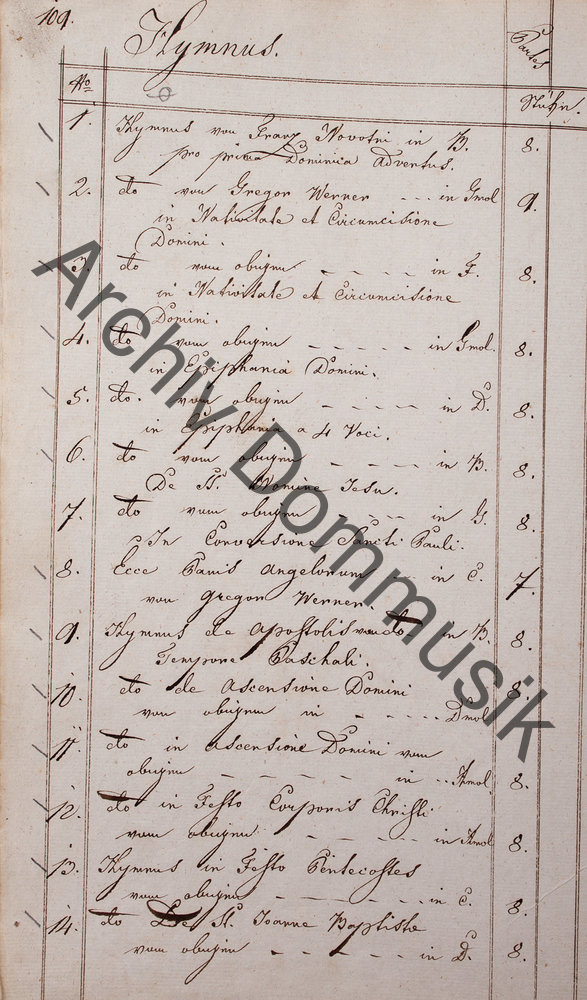 109.
Hymnus.
Partes
No
Stükh.
1. Hymnus von Franz Novotni in B. 8.
pro prima Dominica Adventus.
2. do von Gregor Werner - - - in Gmol 9.
in Nativitate et Circumcisione
Domini.
3. do vom obigen - - - - - in F. 8.
in Nativitate et Circumcisione
Domini.
4. do vom obigen - - - - - in Gmol. 8.
in Epiphania Domini.
5. do. vom obigen - - - - in D. 8.
in Epiphania a 4 Voci.
6. do vom obigen - - - - in B. 8.
De S. Nomine Jesu.
7. do vom obigen - - - - in G. 8.
In Conversione Sancti Pauli.
8. Ecce Panis Angelorum - - in C. 7.
von Gregor Werner.
9. Hymnus de Apostolis von do in B. 8.
Tempore Paschali.
10. do de Ascensione Domini 8.
von obigem in - - - - - Dmol
11. do in Ascensione Domini vom
obigen - - - - - in - - Amol. 8.
12. do in Festo Corporis Christi
vom obigen - - - - in Amol 8.
13. Hymnus in Festo Pentecostes
vom obigen - - - - - in C. 8.
14. do De St. Joanne Baptista
vom obigen - - - - - in D. 8.
Archiv Dommusik